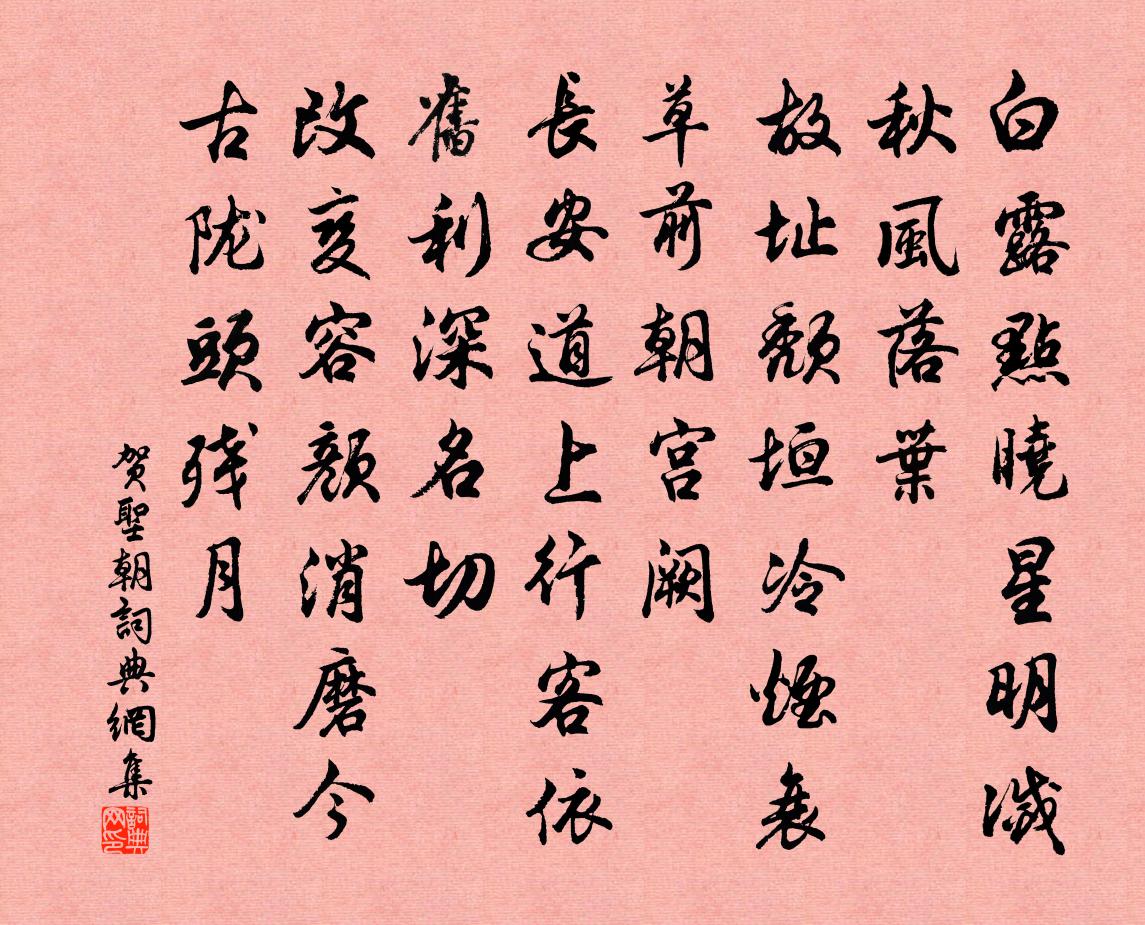 白露點曉星明滅
秋風落葉
故址頹垣冷煙衰
草前朝宮闕
長安道上行客依
舊利深名切
改变容顏消磨今
古陇頭残月
贺聖朝詞典網集
詞典网印